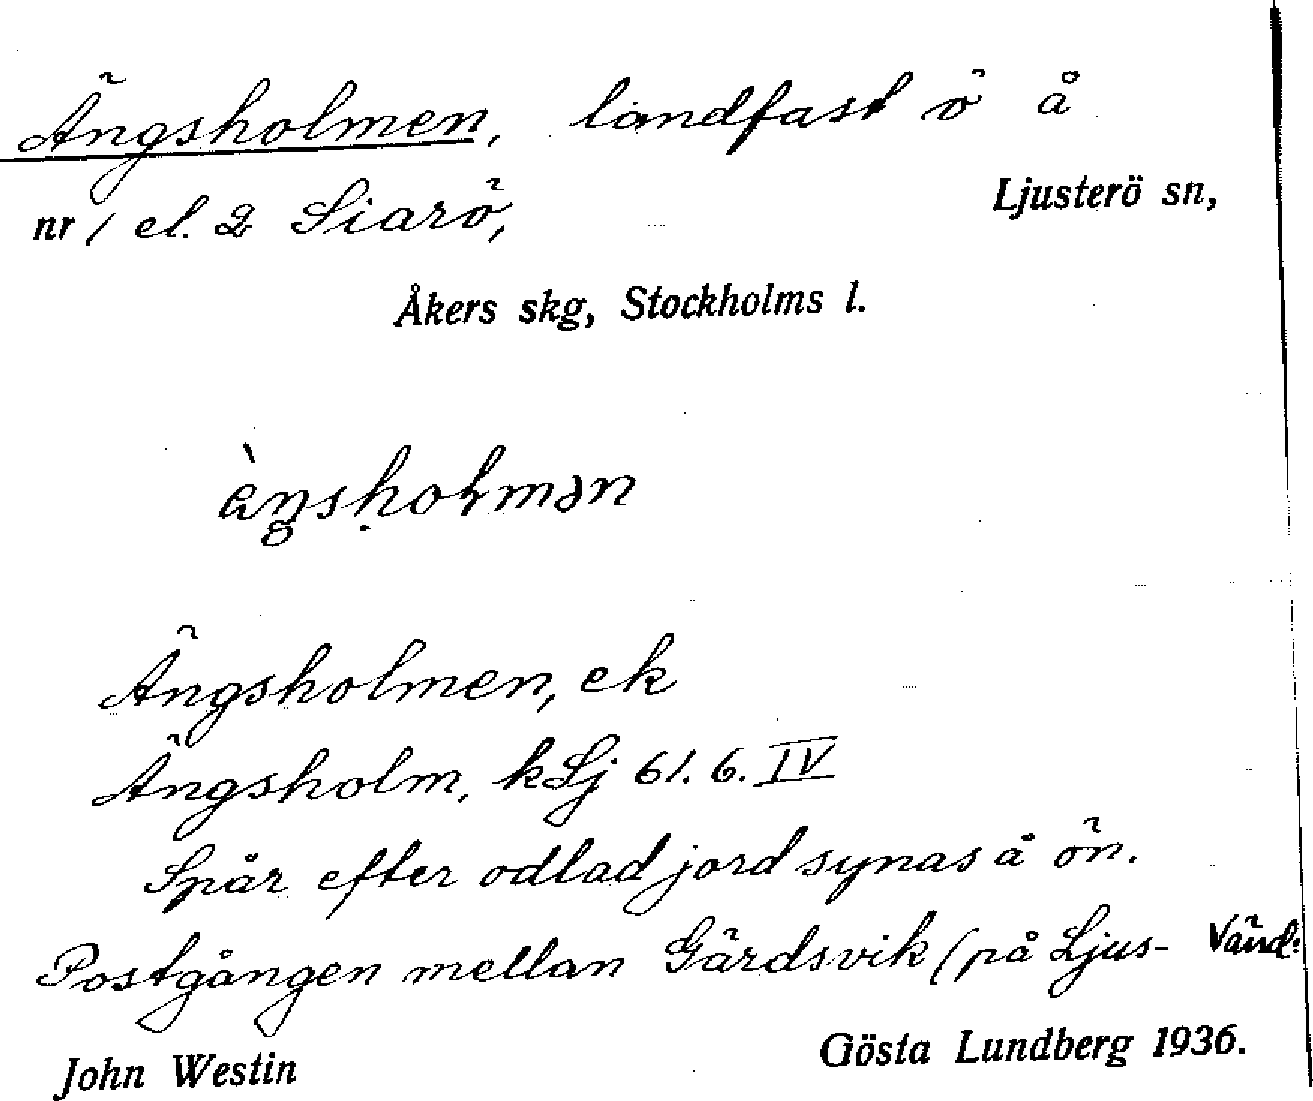 Ängsholmen, landfast ö å
nr 1 el. 2 Siarö, Ljusterö sn,
Åkers skg, Stockholms l.
Ängsholmen, ek
Ängsholm, kLj 61. 6. IV
Spår efter odlad jord synas å ön.
Postgången mellan Gärdsvik (på Ljus- Vänd:
John Westin Gösta Lundberg 1936.